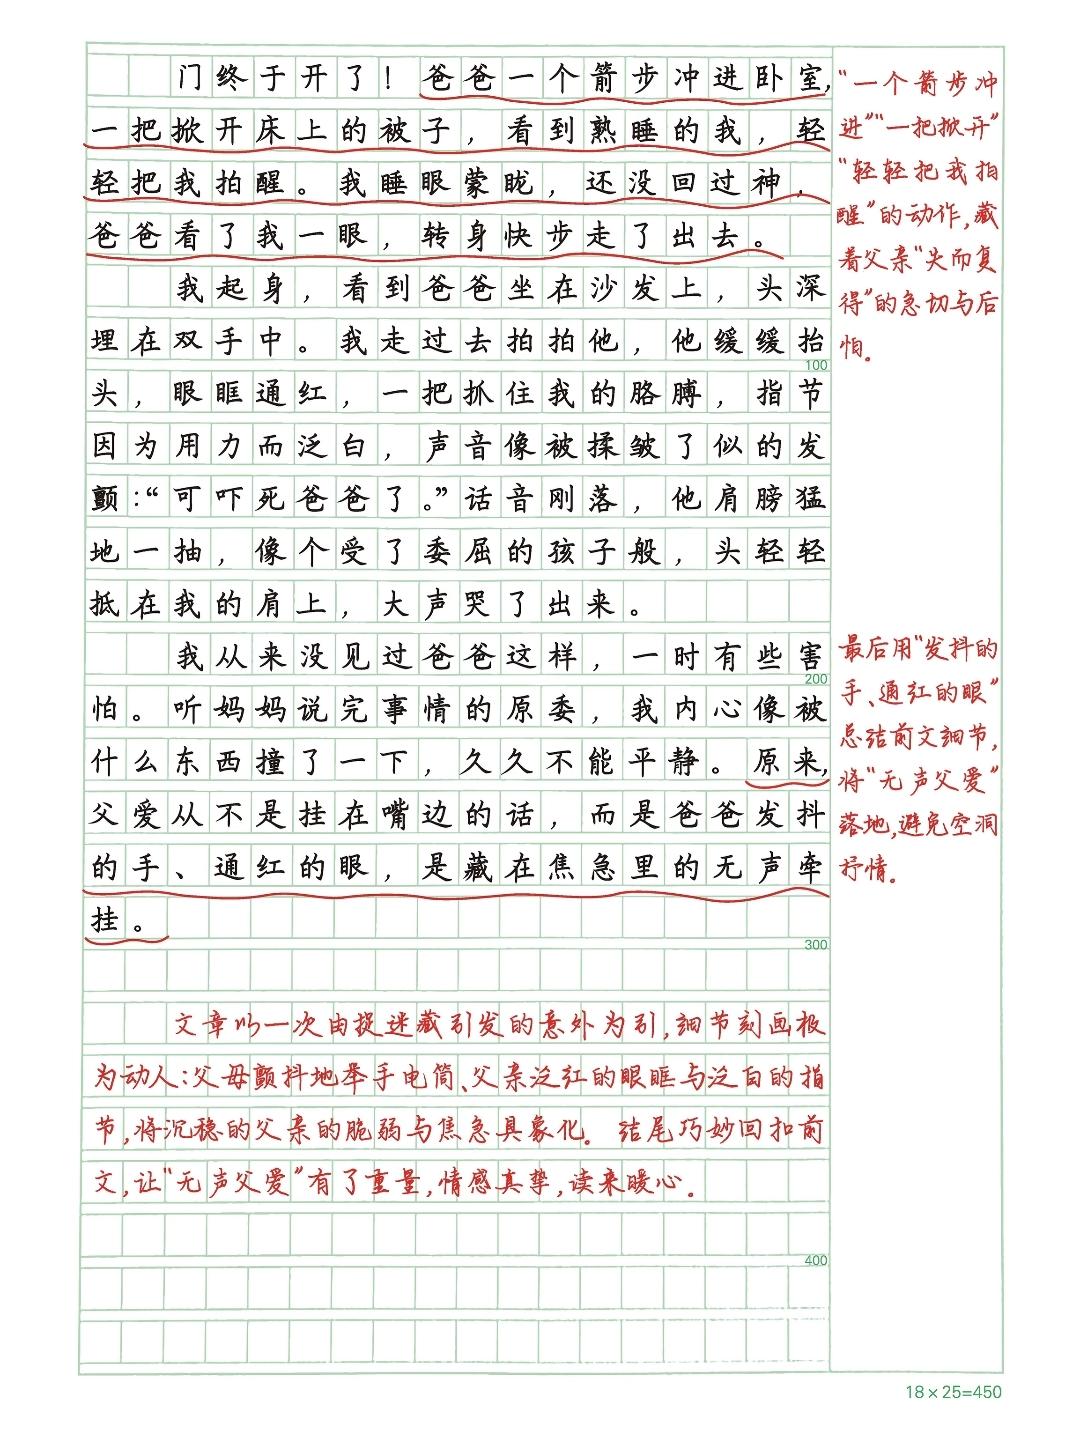 门终于开了！爸爸一个箭步冲进卧室，
一把掀开床上的被子，看到熟睡的我，轻
轻把我拍醒。我睡眼蒙眬，还没回过神，
爸爸看了我一眼，转身快步走了出去。
我起身，看到爸爸坐在沙发上，头深
埋在双手中。我走过去拍拍他，他缓缓抬
100
头，眼眶通红，一把抓住我的胳膊，指节
因为用力而泛白，声音像被揉皱了似的发
颤：“可吓死爸爸了。”话音刚落，他肩膀猛
地一抽，像个受了委屈的孩子般，头轻轻
抵在我的肩上，大声哭了出来。
我从来没见过爸爸这样，一时有些害
200
怕。听妈妈说完事情的原委，我内心像被
什么东西撞了一下，久久不能平静。原来，
父爱从不是挂在嘴边的话，而是爸爸发抖
的手、通红的眼，是藏在焦急里的无声牵
挂。
300
“一个箭步冲
进”“一把掀开”
“轻轻把我拍
醒”的动作，藏
着父亲“失而复
得”的急切与后
怕。
最后用“发抖的
手、通红的眼”
总结前文细节，
将“无声父爱”
落地，避免空洞
抒情。
文章以一次由捉迷藏引发的意外为引，细节刻画极
为动人：父母颤抖地举手电筒、父亲泛红的眼眶与泛白的指
节，将沉稳的父亲的脆弱与焦急具象化。结尾巧妙回扣前
文，让“无声父爱”有了重量，情感真挚，读来暖心。
400
18×25=450